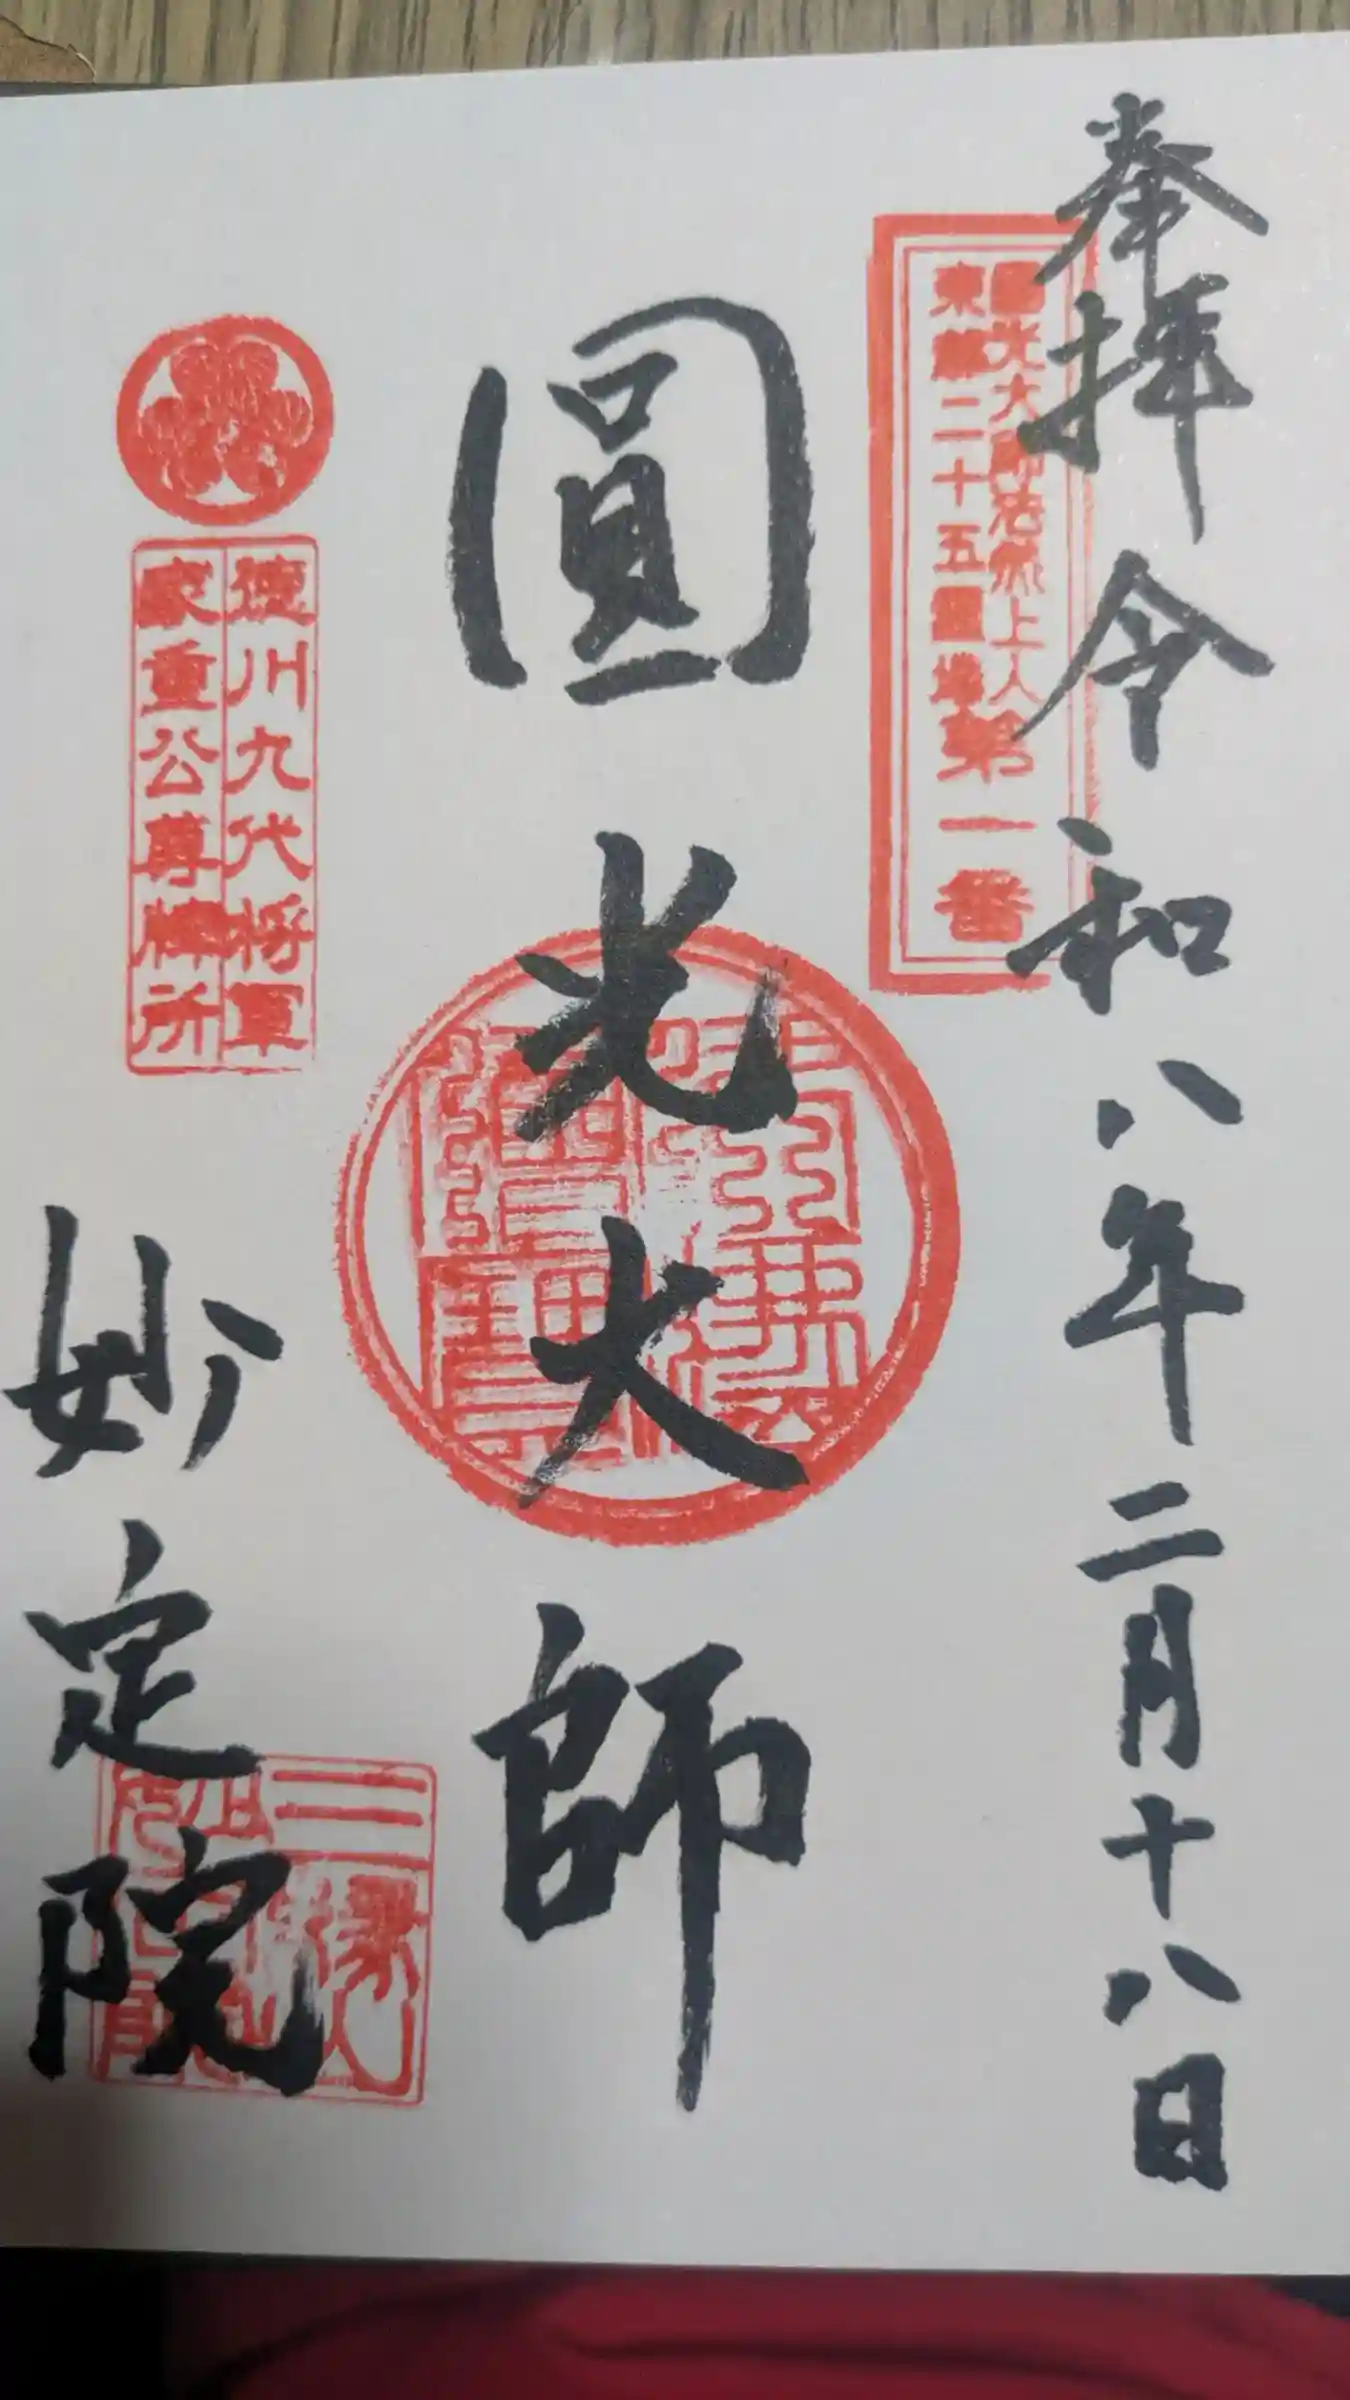 奉拝 令和八年二月十八日
圓光大師法然上人
東都二十五霊場
第一番
圓光大師
徳川九代将軍
家重公尊牌所
妙定院